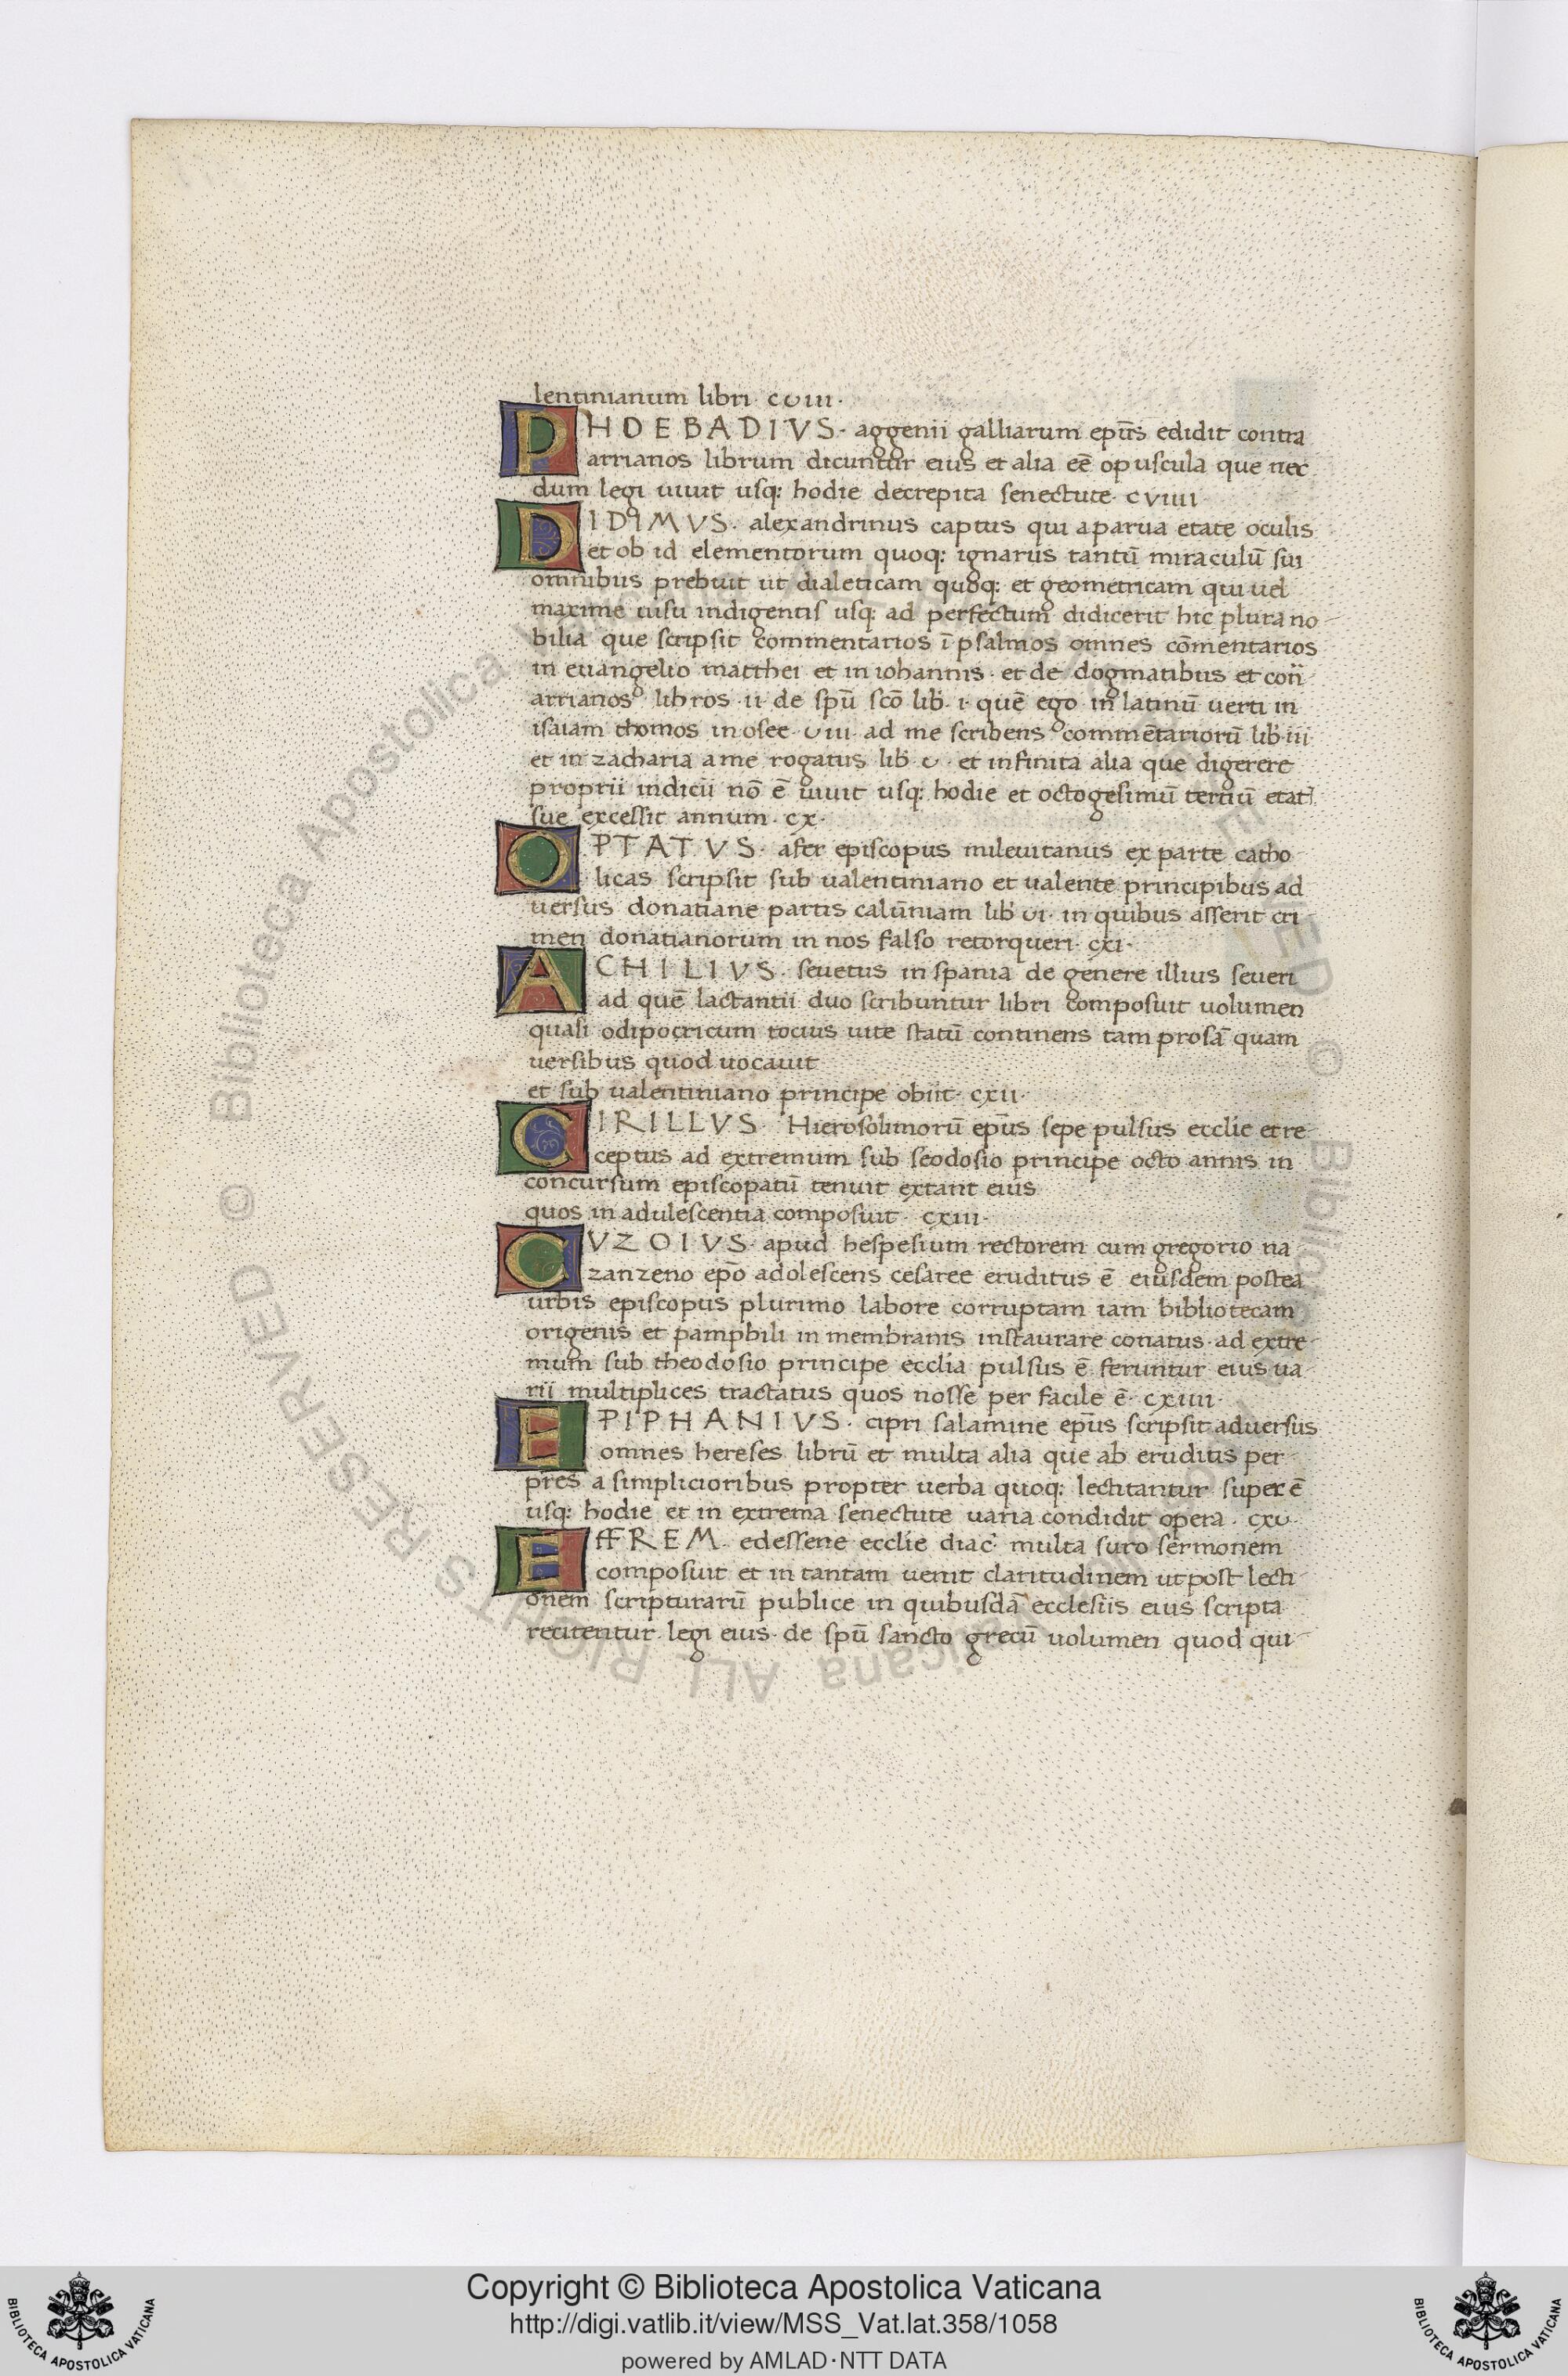 lentinianum libri · cviii ·
PHOEBADIVS · aggenii galliarum epūs edidit contra
arrianos librum dicuntur eius et alia eē opuscula que nec
dum legi uiuit usq: hodie decrepita senectute · cviiii
DIDIMVS · alexandrinus captus qui a parua etate oculis
et ob id elementorum quoq: ignarus tantū miraculū sui
omnibus prebuit ut dialeticam quoq: et geometricam qui uel
maxime uisu indigentis usq: ad perfectum didicerit hic plura no
bilia que scripsit commentarios ī psalmos omnes cōmentarios
in euangelio matthei et in iohannis · et de dogmatibus et cont̄
arrianos libros · ii · de spū scō lib · i · quē ego in latinū uerti in
isaiam thomos in osee · viii · ad me scribens commētariorū lib · iii
et in zacharia a me rogatus lib · v · et infinita alia que digerere
proprii indicii nō ē uiuit usq: hodie et octogesimū tertiū etat
sue excessit annum · cx ·
OPTATVS · afer episcopus mileuitanus ex parte catho
licas scripsit sub ualentiniano et ualente principibus ad
uersus donatiane partis calūniam lib vi · in quibus asserit cri
men donatianorum in nos falso retorqueri · cxi ·
ACHILIVS · seuetus in spania de genere illius seueri
ad quē lactantii duo scribuntur libri composuit uolumen
quasi odipocricum tocius uite statū continens tam prosā quam
uersibus quod uocauit
et sub ualentiniano principe obiit · cxii ·
CIRILLVS · Hierosolimorū epūs sepe pulsus ecclie et re
ceptus ad extremum sub seodosio principe octo annis in
concursum episcopatū tenuit extant eius
quos in adulescentia composuit · cxiii ·
CVZOIVS · apud hespesium rectorem cum gregorio na
zanzeno epō adolescens cesaree eruditus ē eiusdem postea
urbis episcopus plurimo labore corruptam iam bibliotecam
origenis et pamphili in membranis instaurare conatus · ad extre
mum sub theodosio principe ecclia pulsus ē feruntur eius ua
rii multiplices tractatus quos nosse per facile ē · cxiiii ·
EPIPHANIVS · cipri salamine epūs scripsit aduersus
omnes hereses librū et multa alia que ab eruditis per
pres a simplicioribus propter uerba quoq: lectitantur super ē
usq: hodie et in extrema senectute uaria condidit opera · cxv ·
EFFREM · edessene ecclie diac · multa suro sermonem
composuit et in tantam uenit claritudinem ut post lecti
onem scripturarū publice in quibusdā ecclesiis eius scripta
recitentur legi eius · de spū sancto grecū uolumen quod qui
© Biblioteca Apostolica Vaticana ALL RIGHTS RESERVED
Copyright © Biblioteca Apostolica Vaticana
http://digi.vatlib.it/view/MSS_Vat.lat.358/1058
powered by AMLAD·NTT DATA
BIBLIOTECA APOSTOLICA VATICANA
BIBLIOTECA APOSTOLICA VATICANA